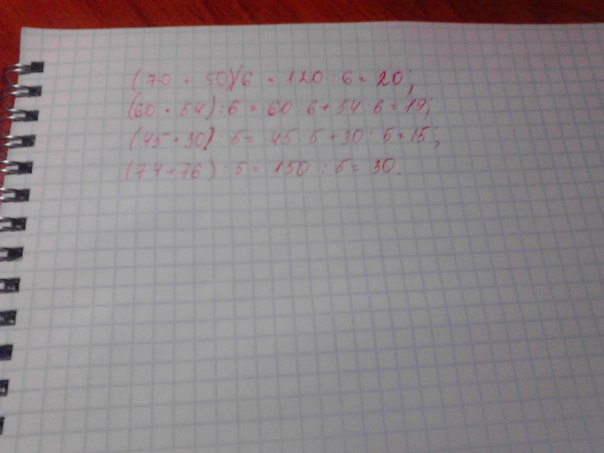 (70 + 50) 6 = 120 : 6 = 20;
(60 + 54) : 6 = 60 6 + 54 : 6 = 19;
(45 + 30) 5 = 45 5 + 30 : 5 = 15;
(74 + 76) : 5 = 150 : 5 = 30.